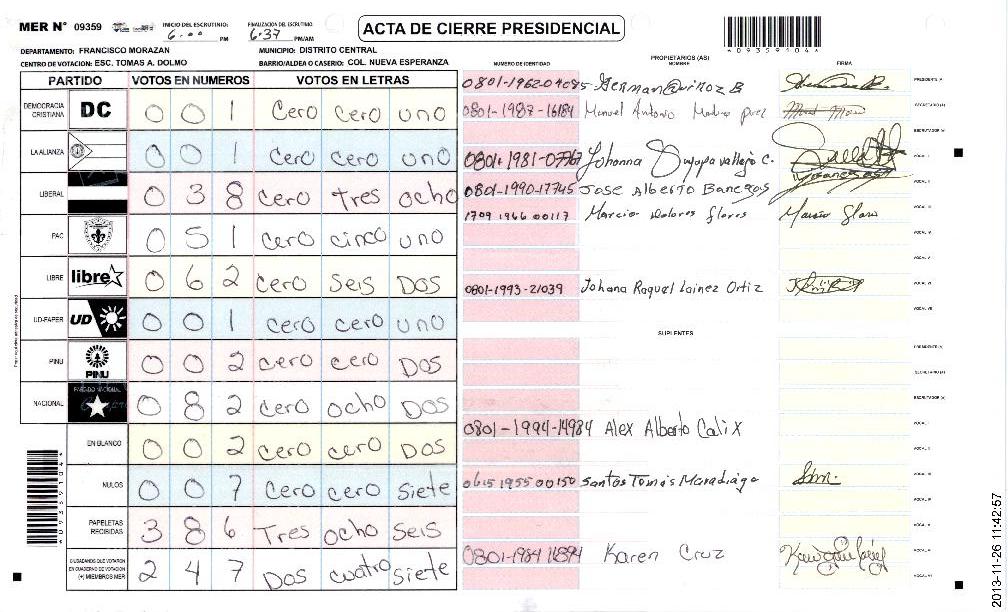 MER N° 09359 INICIO DEL ESCRUTINIO: 6:00 PM FINALIZACION DEL ESCRUTINIO: 6:37 PM/AM
ACTA DE CIERRE PRESIDENCIAL
*09359104*
DEPARTAMENTO: FRANCISCO MORAZAN MUNICIPIO: DISTRITO CENTRAL
CENTRO DE VOTACION: ESC. TOMAS A. DOLMO BARRIO/ALDEA O CASERIO: COL. NUEVA ESPERANZA
PARTIDO VOTOS EN NUMEROS VOTOS EN LETRAS
DEMOCRACIA CRISTIANA DC 0 0 1 Cero Cero uno
LA ALIANZA 0 0 1 Cero cero uno
LIBERAL 0 3 8 Cero tres ocho
PAC 0 5 1 Cero cinco uno
LIBRE libre 0 6 2 Cero Seis Dos
UD-FAPER UD 0 0 1 cero cero uno
PINU PINU 0 0 2 cero cero Dos
NACIONAL PARTIDO NACIONAL 0 8 2 cero ocho Dos
EN BLANCO 0 0 2 cero cero Dos
NULOS 0 0 7 cero cero siete
PAPELETAS RECIBIDAS 3 8 6 Tres ocho Seis
CIUDADANOS QUE VOTARON EN CUADERNO DE VOTACION (+) MIEMBROS MER 2 4 7 Dos cuatro siete
*09359104*
NUMERO DE IDENTIDAD PROPIETARIOS (AS) NOMBRE FIRMA
PRESIDENTE (A)
0801-1987-16184 Manuel Antonio SECRETARIO (A)
ESCRUTADOR (A)
Johanna Suyapa Vallejo C. VOCAL I
0801-1990-17745 Jose Alberto Banegas VOCAL II
1709 1966 00117 Marcia Dolores flores VOCAL III
VOCAL IV
VOCAL V
0801-1993-21039 Johana Raquel Lainez Ortiz VOCAL VI
VOCAL VII
SUPLENTES
PRESIDENTE (A)
SECRETARIO (A)
ESCRUTADOR (A)
0801-1994-14984 Alex Alberto Calix VOCAL I
VOCAL II
0615 1955 00150 Santos Tomás Maradiaga VOCAL III
VOCAL IV
Karen Cruz VOCAL V
VOCAL VI
2013-11-26 11:42:57